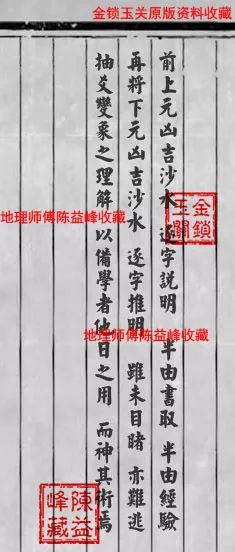 金锁玉关原版资料收藏
前上元凶吉沙水 逐字説明 半由書取 半由經驗
再將下元凶吉沙水 逐字推明 雖未目睹 亦難逃
抽爻變象之理解 以備學者他日之用 而神其術焉
金鎖玉關
地理师傅陈益峰收藏
地理师傅陈益峰收藏
陳益峰藏